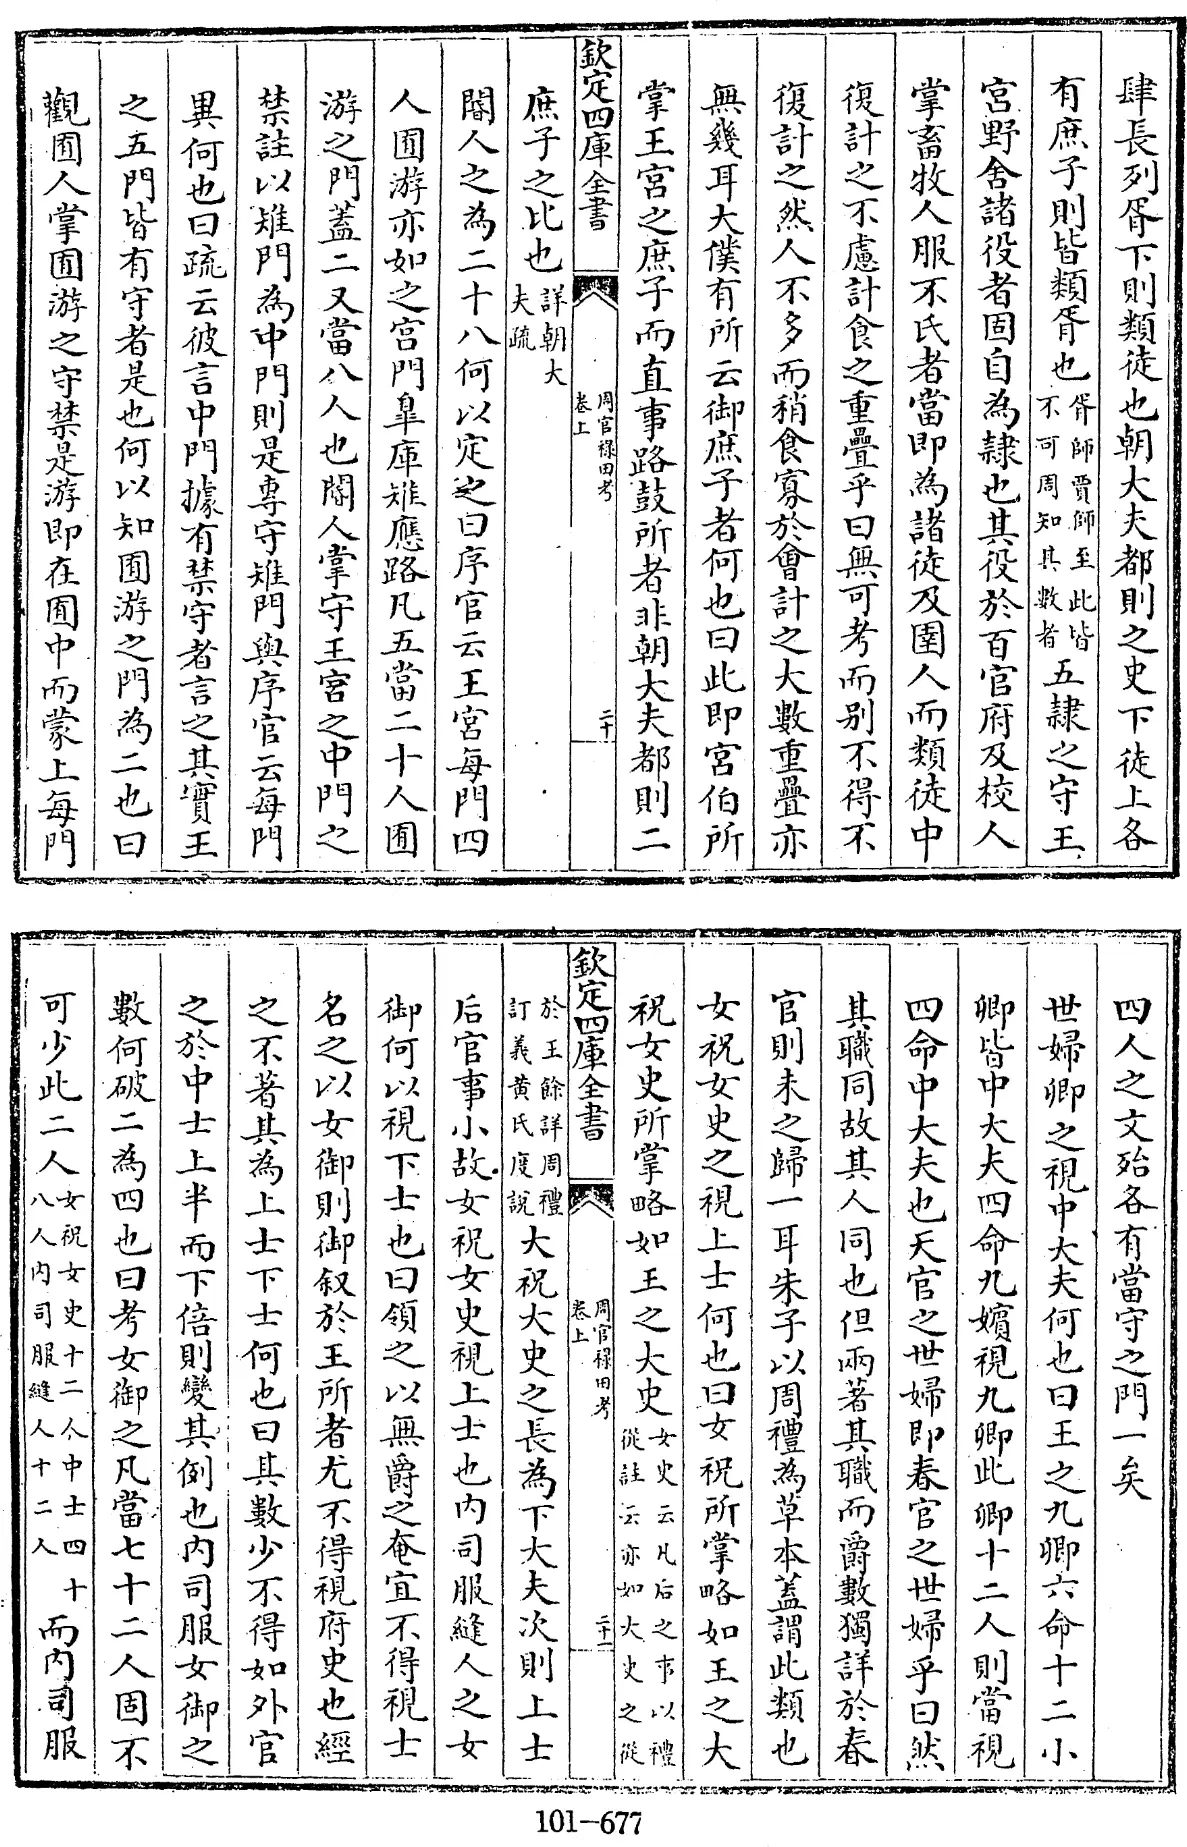 肆長列胥下則類徒也朝大夫都則之史下徒上各
有庶子則皆類胥也胥師賈師至此皆不可周知其數者五隷之守王
宮野舍諸役者固自為隷也其役於百官府及校人
掌畜牧人服不氏者當即為諸徒及圉人而類徒中
復計之不慮計食之重疊乎曰無可考而别不得不
復計之然人不多而稍食寡於會計之大數重疊亦
無幾耳大僕有所云御庶子者何也曰此即宮伯所
掌王宮之庶子而直事路鼓所者非朝大夫都則二
欽定四庫全書
周官祿田考
卷上
二十
庶子之比也詳朝大夫疏
閽人之為二十八何以定之曰序官云王宮每門四
人囿游亦如之宮門臯庫雉應路凡五當二十人囿
游之門蓋二又當八人也閽人掌守王宮之中門之
禁註以雉門為中門則是專守雉門與序官云每門
異何也曰疏云彼言中門據有禁守者言之其實王
之五門皆有守者是也何以知囿游之門為二也曰
觀囿人掌囿游之守禁是游即在囿中而蒙上每門
四人之文殆各有當守之門一矣
世婦卿之視中大夫何也曰王之九卿六命十二小
卿皆中大夫四命九嬪視九卿此卿十二人則當視
四命中大夫也天官之世婦即春官之世婦乎曰然
其職同故其人同也但兩著其職而爵數獨詳於春
官則未之歸一耳朱子以周禮為草本蓋謂此類也
女祝女史之視上士何也曰女祝所掌略如王之大
祝女史所掌略如王之大史女史云凡后之事以禮從註云亦如大史之從
欽定四庫全書
周官祿田考
卷上
二十一
於王餘詳周禮訂義黄氏度說大祝大史之長為下大夫次則上士
后官事小故女祝女史視上士也内司服縫人之女
御何以視下士也曰領之以無爵之奄宜不得視士
名之以女御則御叙於王所者尤不得視府史也經
之不著其為上士下士何也曰其數少不得如外官
之於中士上半而下倍則變其例也内司服女御之
數何破二為四也曰考女御之凡當七十二人固不
可少此二人女祝女史十二人中士四十八人内司服縫人十二人而内司服
101-677